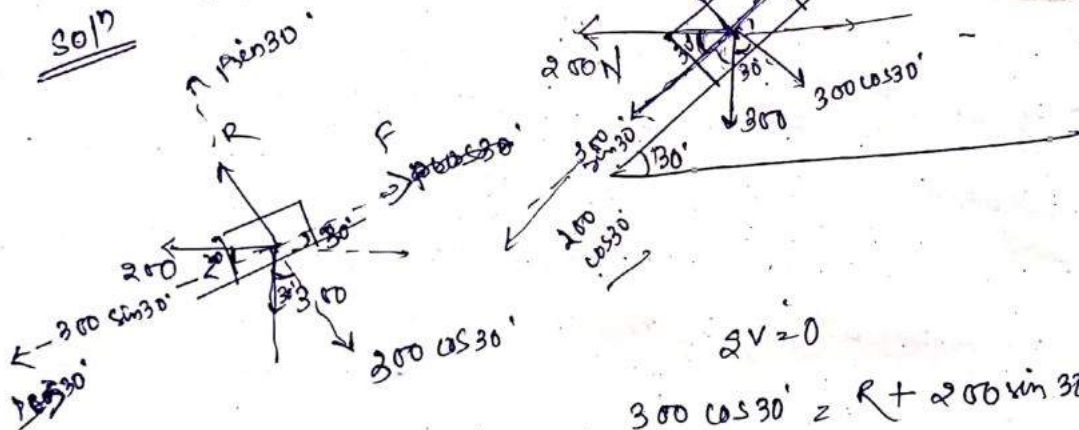 Solⁿ
psin30°
R
F
pcos30°
30°
200
30°
300
300 sin30°
300 cos30°
200N
30°
30°
300 cos30°
300
300 sin30°
30°
200 cos30°
ΣV=0
300 cos30° = R + 200 sin 30